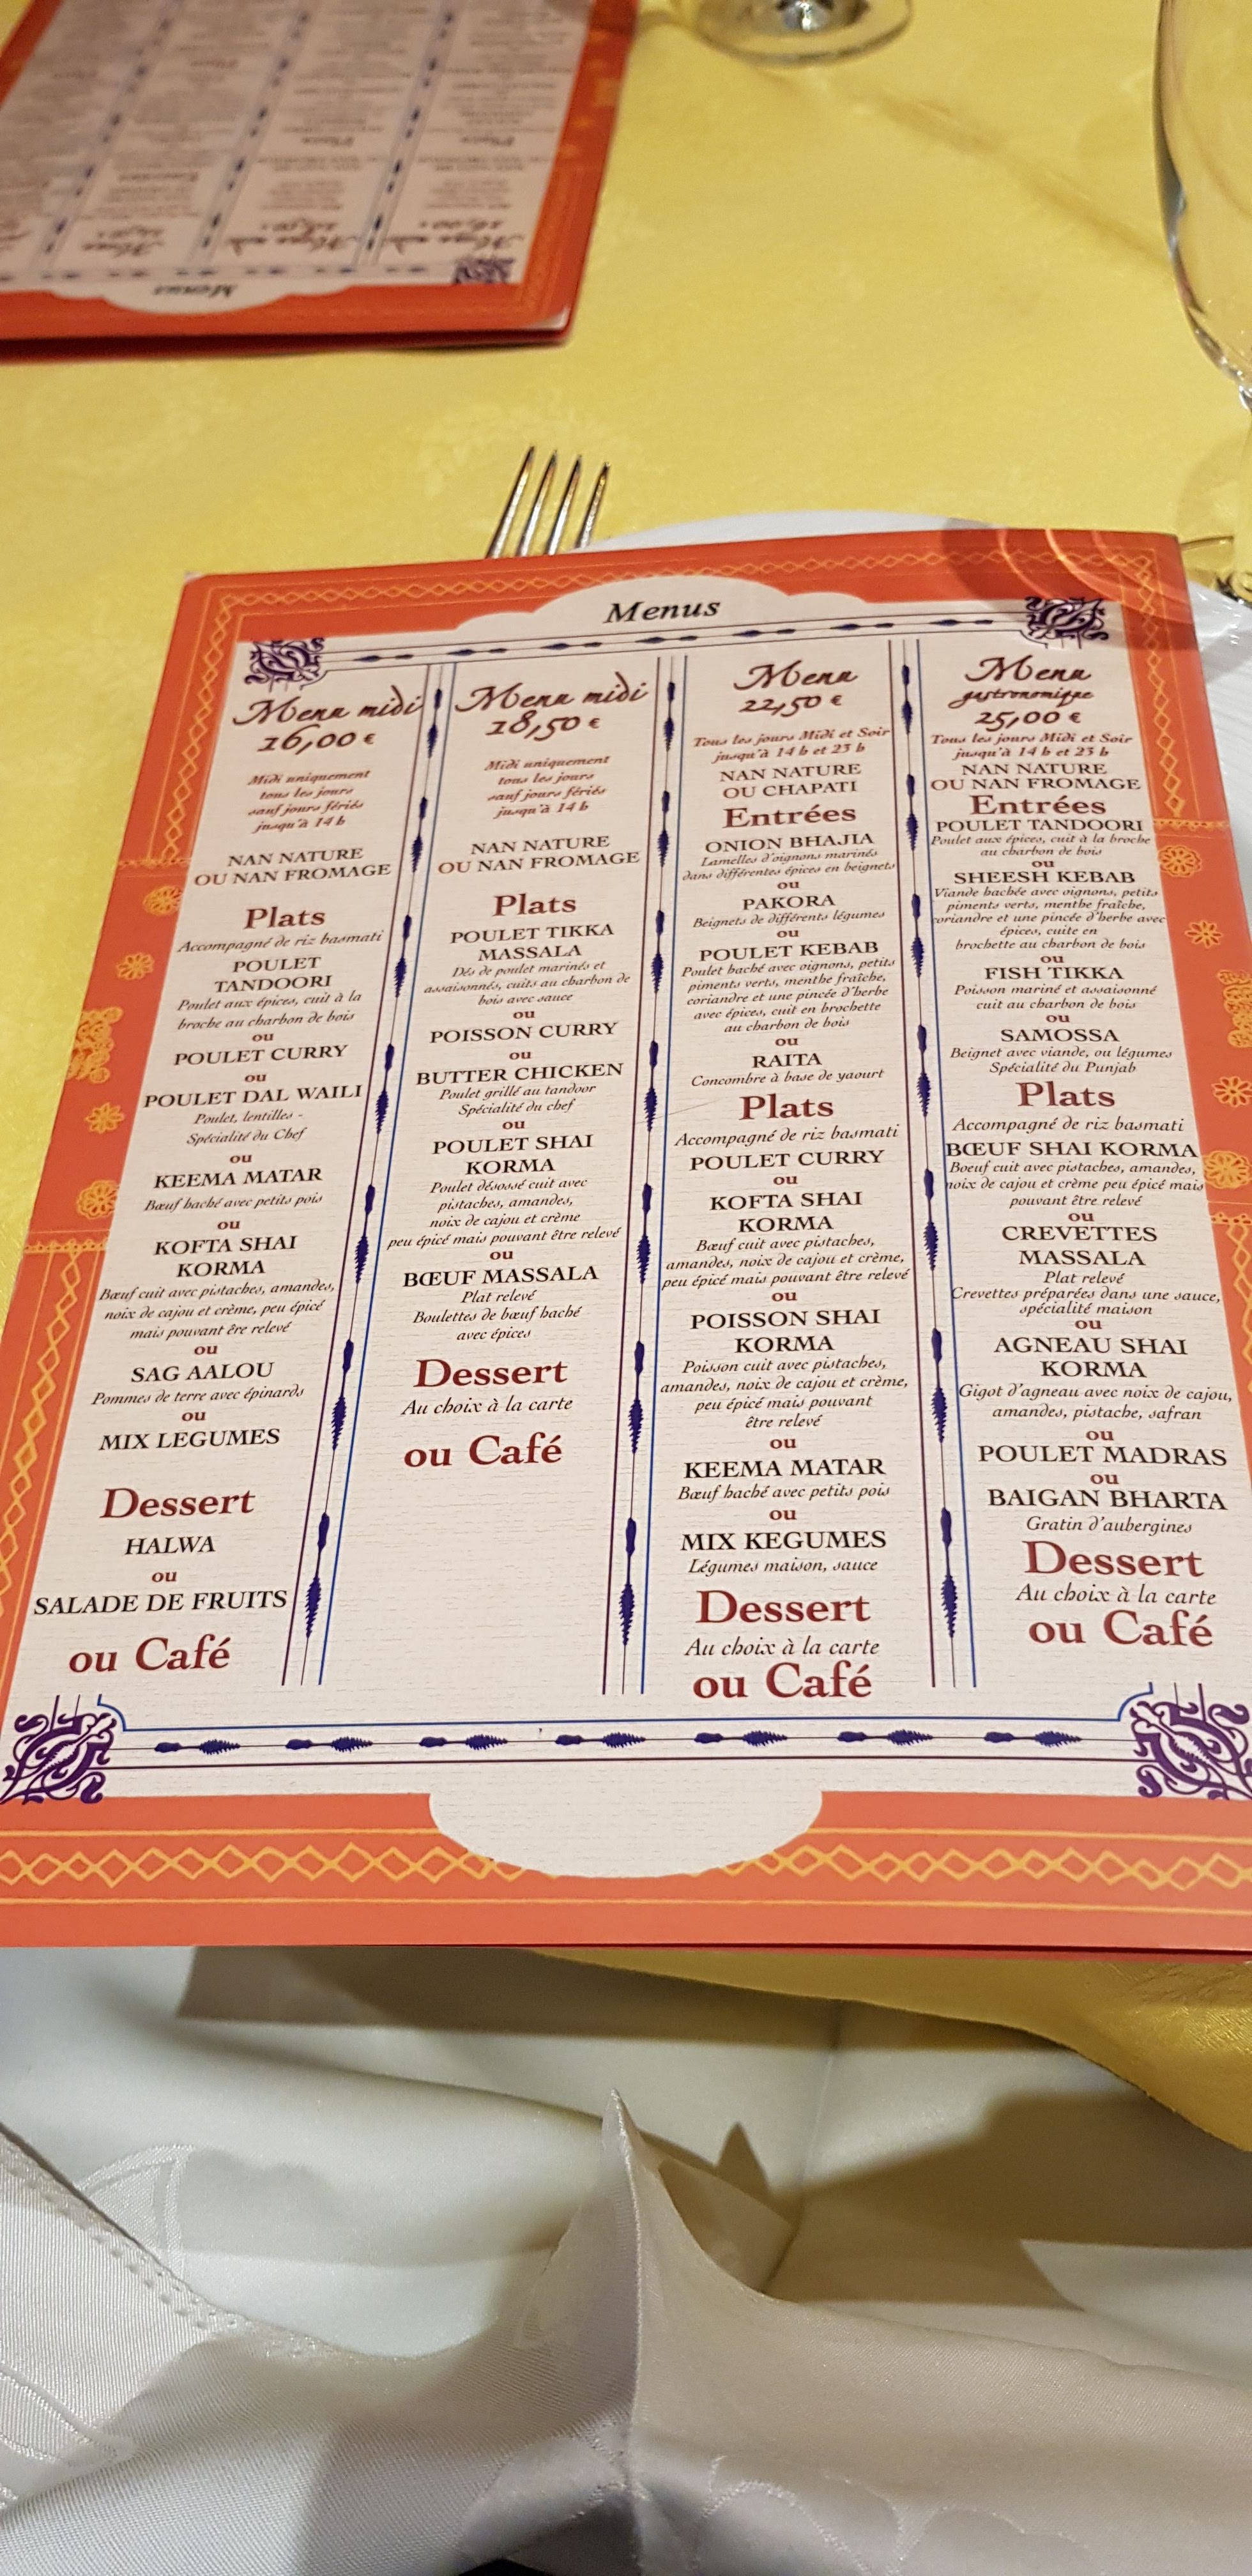 Menus
Menu midi
16,00 €
Midi uniquement
tous les jours
sauf jours fériés
jusqu'à 14 h
NAN NATURE
OU NAN FROMAGE
Plats
Accompagné de riz basmati
POULET
TANDOORI
Poulet aux épices, cuit à la
broche au charbon de bois
ou
POULET CURRY
ou
POULET DAL WAILI
Poulet, lentilles -
Spécialité du Chef
ou
KEEMA MATAR
Bœuf haché avec petits pois
ou
KOFTA SHAI
KORMA
Bœuf cuit avec pistaches, amandes,
noix de cajou et crème, peu épicé
mais pouvant êre relevé
ou
SAG AALOU
Pommes de terre avec épinards
ou
MIX LEGUMES
Dessert
HALWA
ou
SALADE DE FRUITS
ou Café
Menu midi
18,50 €
Midi uniquement
tous les jours
sauf jours fériés
jusqu'à 14 h
NAN NATURE
OU NAN FROMAGE
Plats
POULET TIKKA
MASSALA
Dés de poulet marinés et
assaisonnés, cuits au charbon de
bois avec sauce
ou
POISSON CURRY
ou
BUTTER CHICKEN
Poulet grillé au tandoor
Spécialité du chef
ou
POULET SHAI
KORMA
Poulet désossé cuit avec
pistaches, amandes,
noix de cajou et crème
peu épicé mais pouvant être relevé
ou
BŒUF MASSALA
Plat relevé
Boulettes de bœuf haché
avec épices
Dessert
Au choix à la carte
ou Café
Menu
22,50 €
Tous les jours Midi et Soir
jusqu'à 14 h et 23 h
NAN NATURE
OU CHAPATI
Entrées
ONION BHAJIA
Lamelles d'oignons marinés
dans différentes épices en beignets
ou
PAKORA
Beignets de différents légumes
ou
POULET KEBAB
Poulet haché avec oignons, petits
piments verts, menthe fraîche,
coriandre et une pincée d'herbe
avec épices, cuit en brochette
au charbon de bois
ou
RAITA
Concombre à base de yaourt
Plats
Accompagné de riz basmati
POULET CURRY
ou
KOFTA SHAI
KORMA
Bœuf cuit avec pistaches,
amandes, noix de cajou et crème,
peu épicé mais pouvant être relevé
ou
POISSON SHAI
KORMA
Poisson cuit avec pistaches,
amandes, noix de cajou et crème,
peu épicé mais pouvant
être relevé
ou
KEEMA MATAR
Bœuf haché avec petits pois
ou
MIX KEGUMES
Légumes maison, sauce
Dessert
Au choix à la carte
ou Café
Menu
gastronomique
25,00 €
Tous les jours Midi et Soir
jusqu'à 14 h et 23 h
NAN NATURE
OU NAN FROMAGE
Entrées
POULET TANDOORI
Poulet aux épices, cuit à la broche
au charbon de bois
ou
SHEESH KEBAB
Viande hachée avec oignons, petits
piments verts, menthe fraîche,
coriandre et une pincée d'herbe avec
épices, cuite en
brochette au charbon de bois
ou
FISH TIKKA
Poisson mariné et assaisonné
cuit au charbon de bois
ou
SAMOSSA
Beignet avec viande, ou légumes
Spécialité du Punjab
Plats
Accompagné de riz basmati
BŒUF SHAI KORMA
Boeuf cuit avec pistaches, amandes,
noix de cajou et crème peu épicé mais
pouvant être relevé
ou
CREVETTES
MASSALA
Plat relevé
Crevettes préparées dans une sauce,
spécialité maison
ou
AGNEAU SHAI
KORMA
Gigot d'agneau avec noix de cajou,
amandes, pistache, safran
ou
POULET MADRAS
ou
BAIGAN BHARTA
Gratin d'aubergines
Dessert
Au choix à la carte
ou Café
Menus